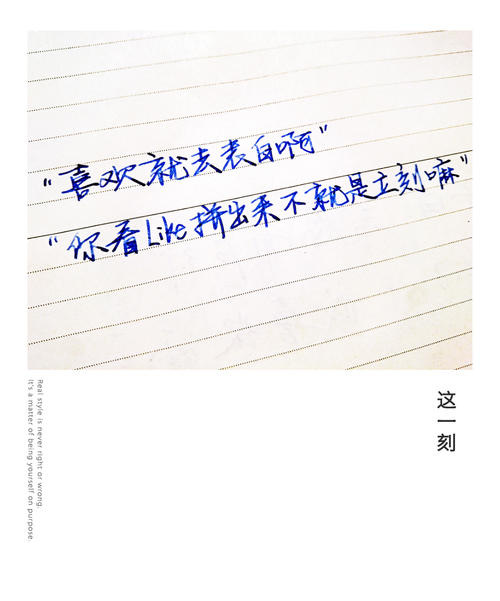 “喜欢就去表白啊”
“你看Like拼出来不就是立刻嘛”
这一刻
Real style is never right or wrong.
It's a matter of being yourself on purpose.